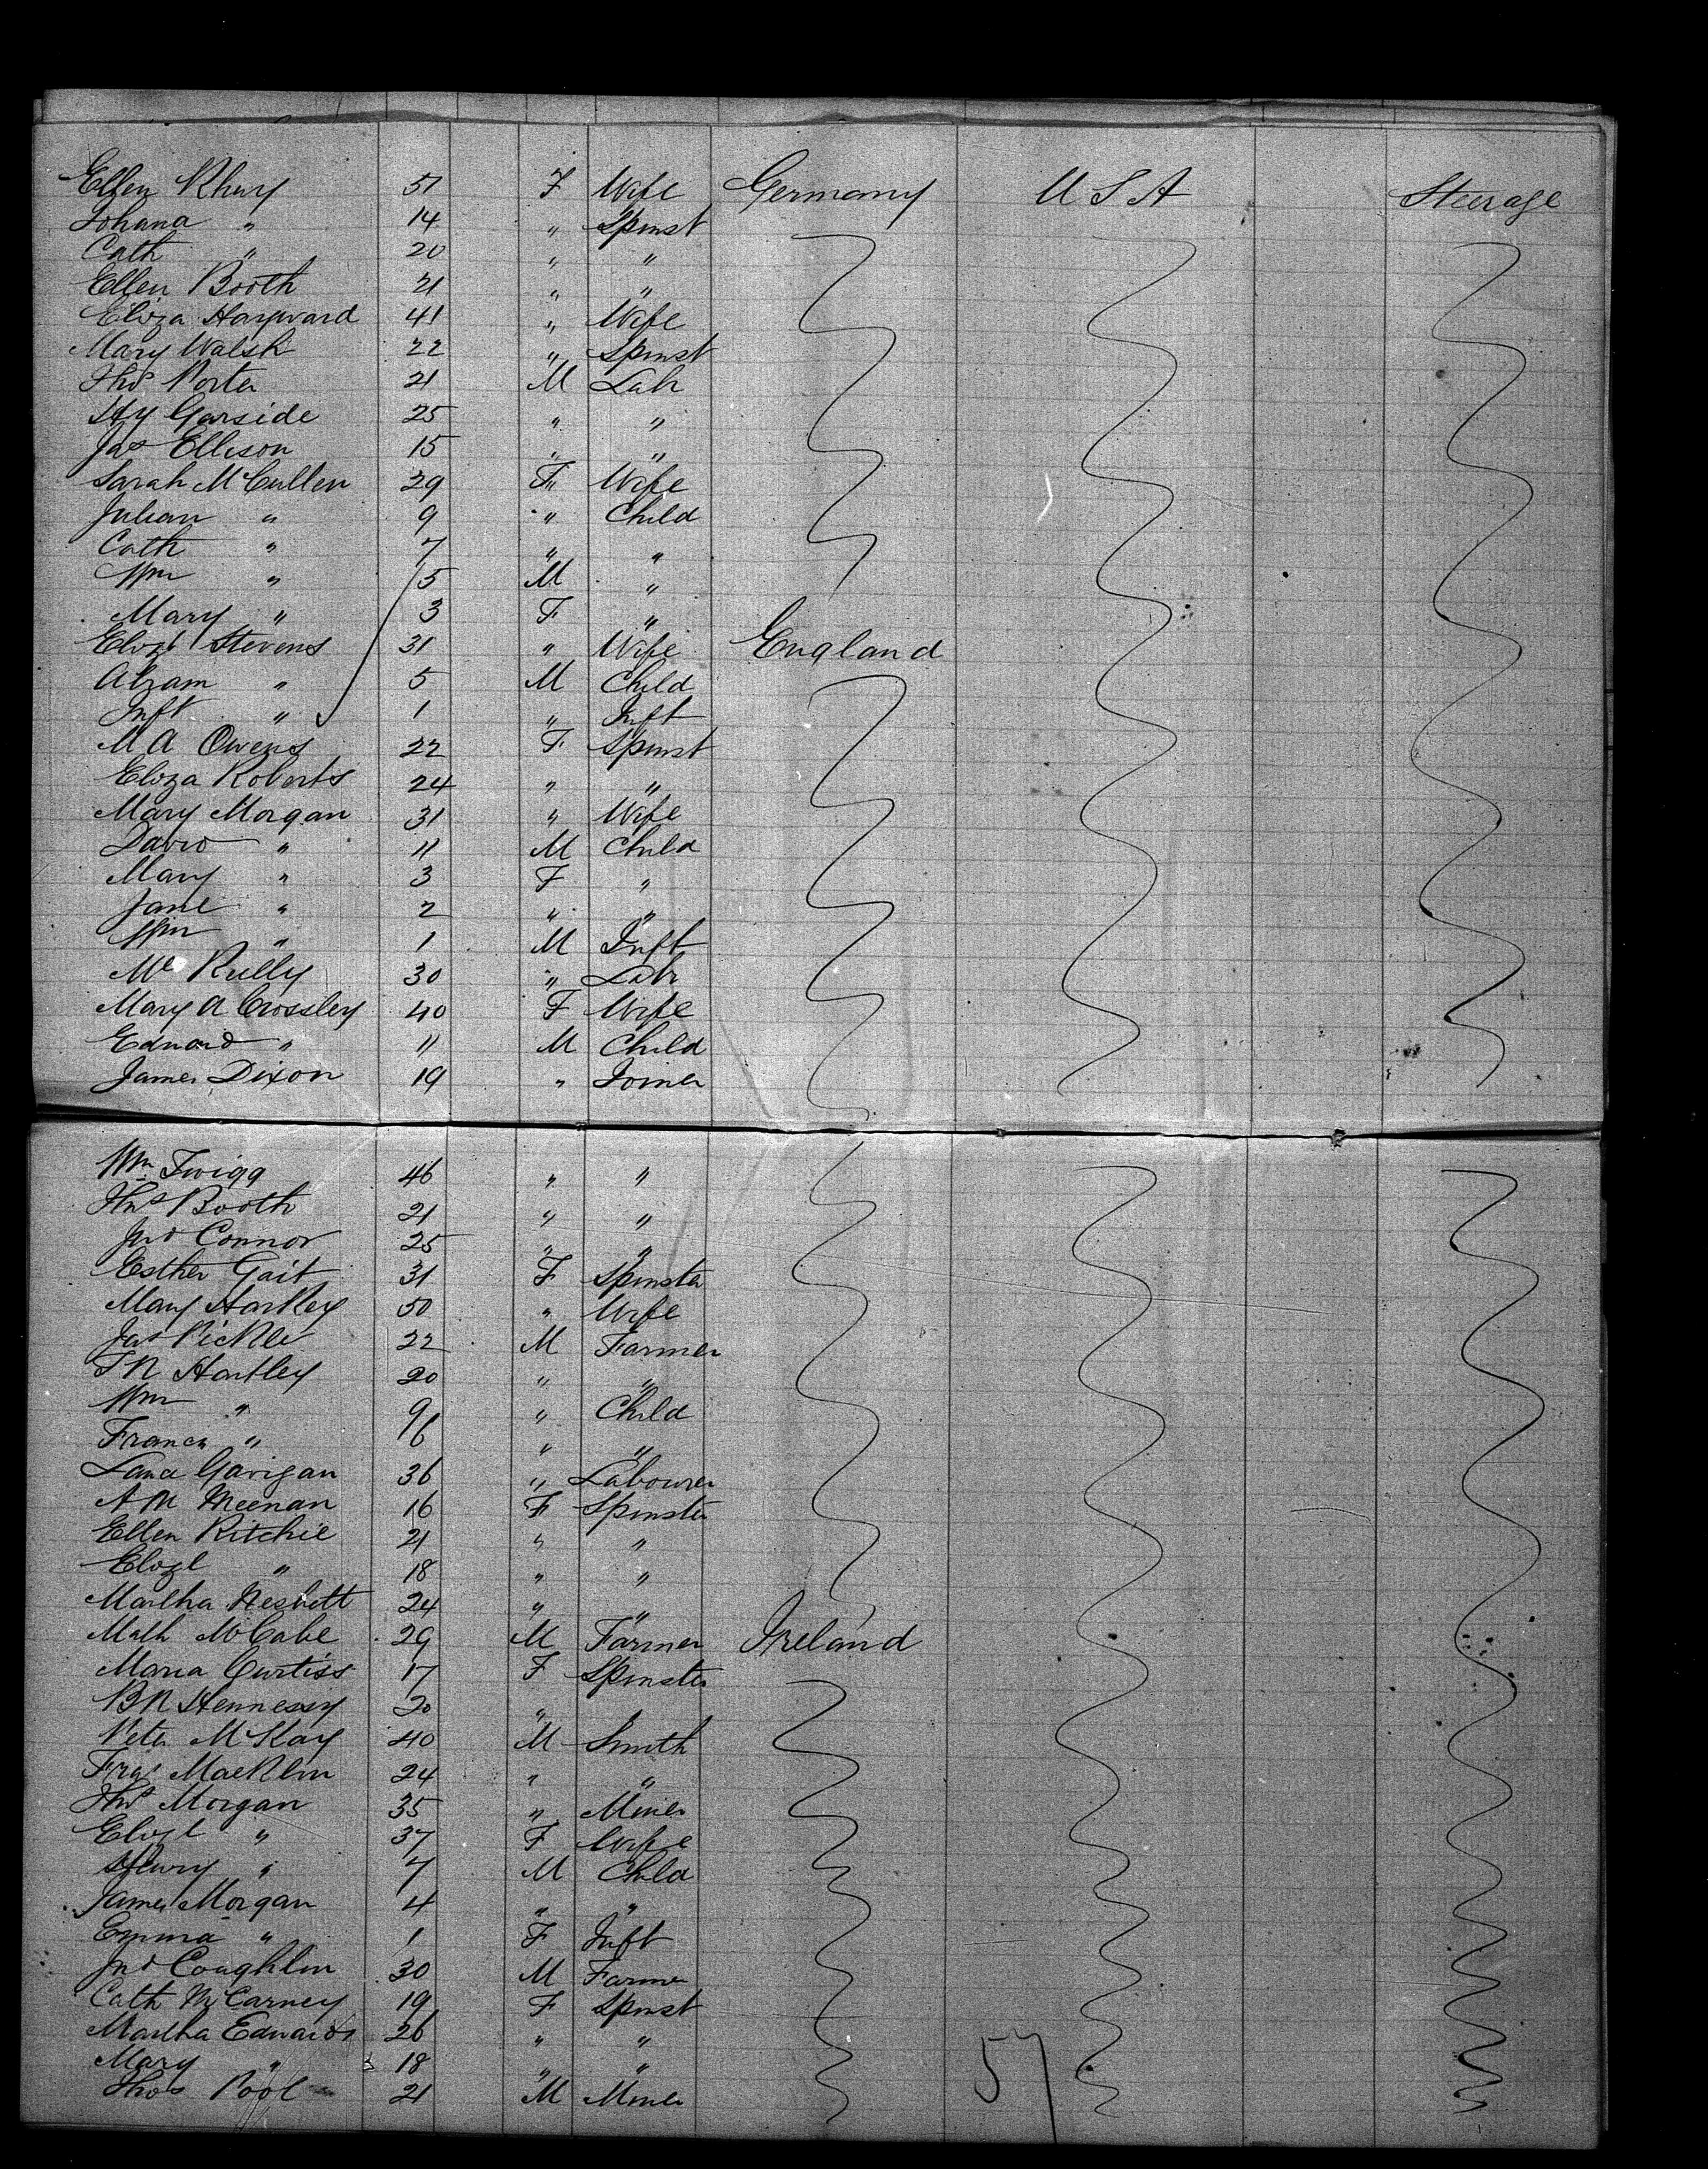 Ellen Khury 51 F Wife Germany U S A Steerage
Johana " 14 " Spinst
Cath " 20 " "
Ellen Booth 21 " "
Eliza Hayward 41 " Wife
Mary Walsh 22 " Spinst
Thos Porter 21 M Labr
Hy Garside 25 " "
Jas Ellison 15 " "
Sarah McCullen 29 F Wife
Julian " 9 " Child
Cath " 7 " "
Wm " 5 M "
Mary " 3 F "
Elizt Stevens 31 " Wife England
Abram " 5 M Child
Inft " 1 " Inft
M A Owens 22 F Spinst
Eliza Roberts 24 " "
Mary Morgan 31 " Wife
David " 11 M Child
Mary " 3 F "
Jane " 2 " "
Wm " 1 M Inft
Ml Kelly 30 " Labr
Mary A Crossley 40 F Wife
Edward " 11 M Child
James Dixon 19 " Joiner
Wm Twigg 46 " "
Thos Booth 21 " "
Jno Connor 25 " "
Esther Gait 31 F Spinster
Mary Hartley 50 " Wife
Jas Pickler 22 M Farmer
T N Hartley 20 " "
Wm " 9 " Child
Francis " 6 " "
Garigan 36 " Labourer
A M Meenan 16 F Spinster
Ellen Ritchie 21 " "
Elizt " 18 " "
Martha Nesbitt 24 " "
Math McCabe 29 M Farmer Ireland
Maria Curtiss 17 F Spinster
B N Hennessy 20 "
Peter McKay 40 M Smith
Fras Macklin 24 " "
Thos Morgan 35 " Miner
Elizt " 37 F Wife
Henry " 7 M Child
James Morgan 4 " "
Emma " 1 F Inft
Jno Coughlin 30 M Farmer
Cath McCarney 19 F Spinst
Martha Edwards 26 " "
Mary " 18 " "
Thos Pool 21 M Miner
57